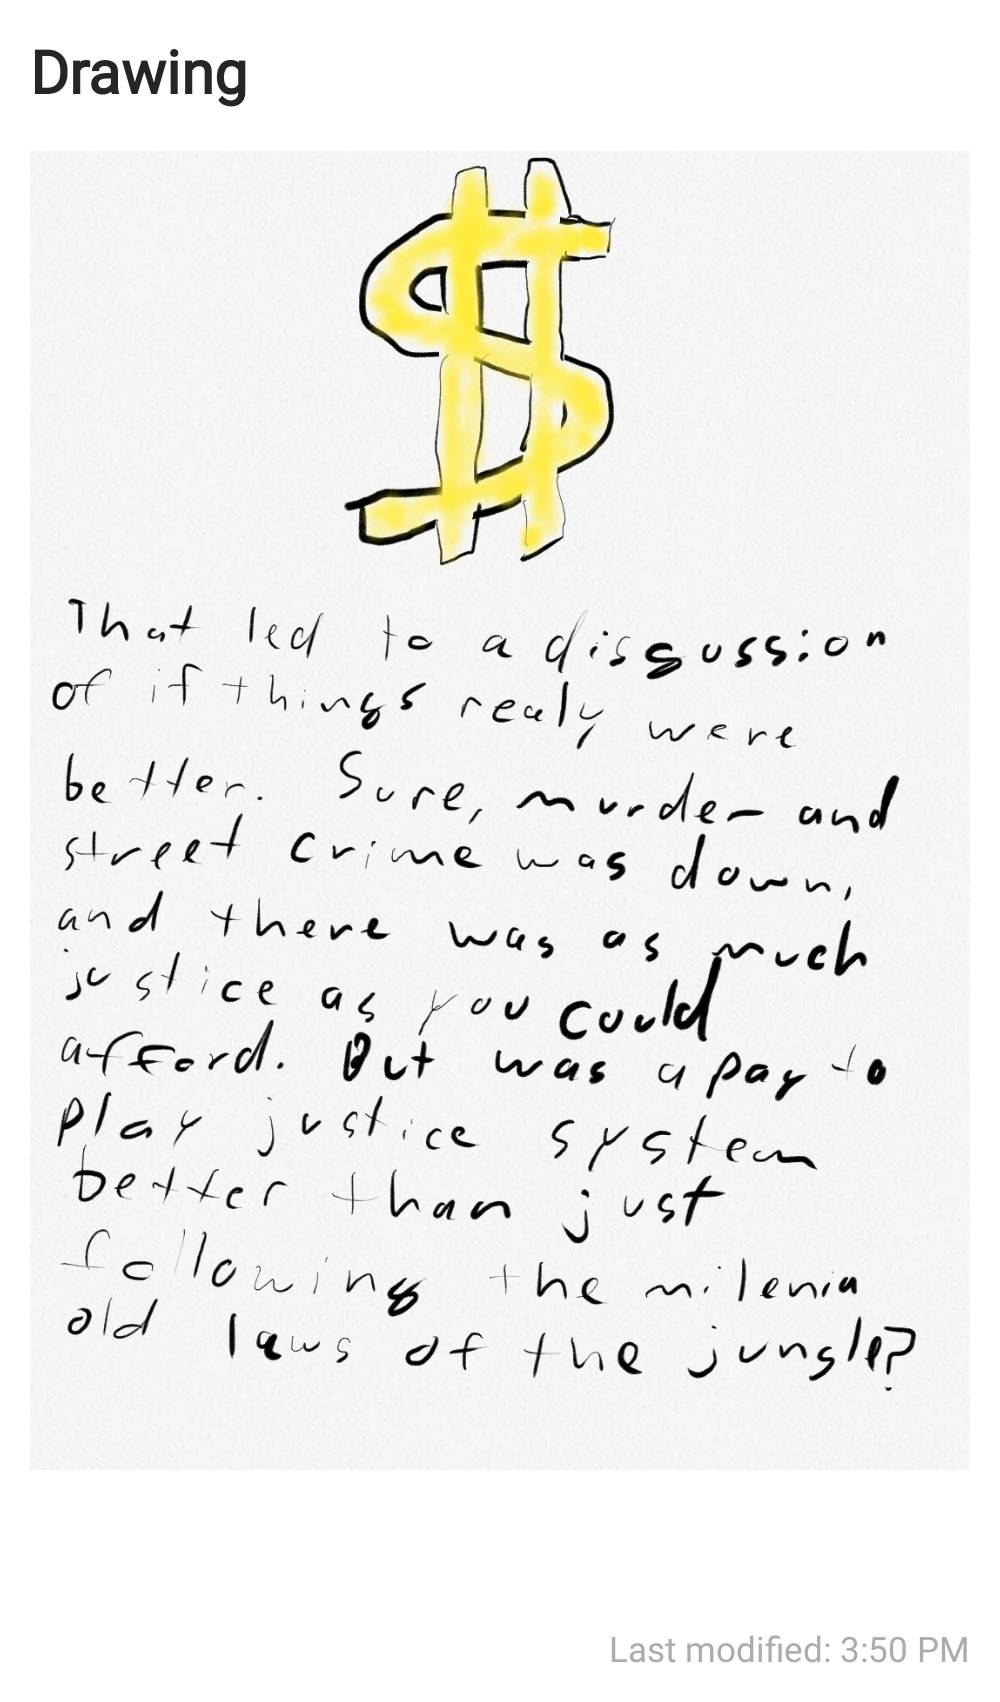 Drawing
That led to a disgussion
of if things realy were
better. Sure, murder and
street crime was down,
and there was as much
justice as you could
afford. But was a pay to
play justice system
better than just
following the milenia
old laws of the jungle?
Last modified: 3:50 PM